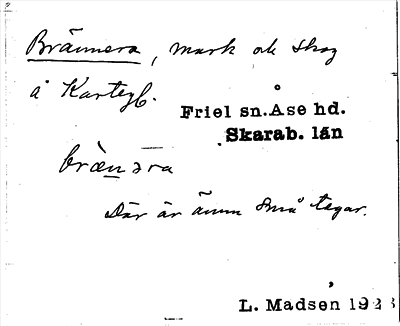 Brännera, mark ok skog
å Kartegb.
Friel sn. Åse hd.
Skarab. län
brænəra
Där är ännu små tegar.
L. Madsen 1928